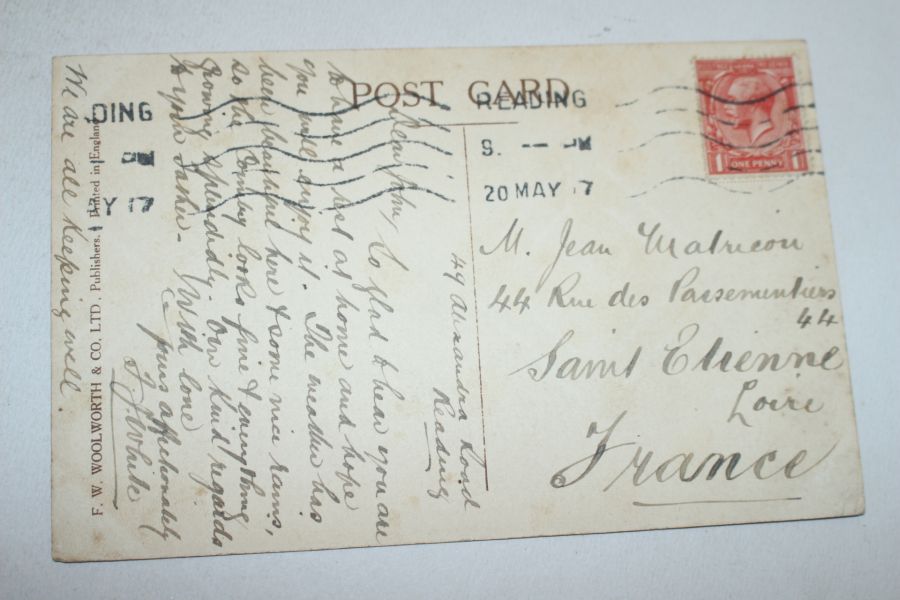 POST CARD
READING
S. PM
20 MAY 17
DING
PM
Y 17
ONE PENNY
1 1
M. Jean Matricon
44 Rue des Passementiers
44
Saint Etienne
Loire
France
49 Alexandra Road
Reading
So glad to hear you are
to have a rest at home and hope
you will enjoy it. The weather has
been beautiful here & some nice rains,
so the country looks fine & everything
growing splendidly. Our kind regards
to your Father. With love
yours affectionately
White
We are all keeping well.
F. W. WOOLWORTH & CO. LTD, Publishers. Printed in England